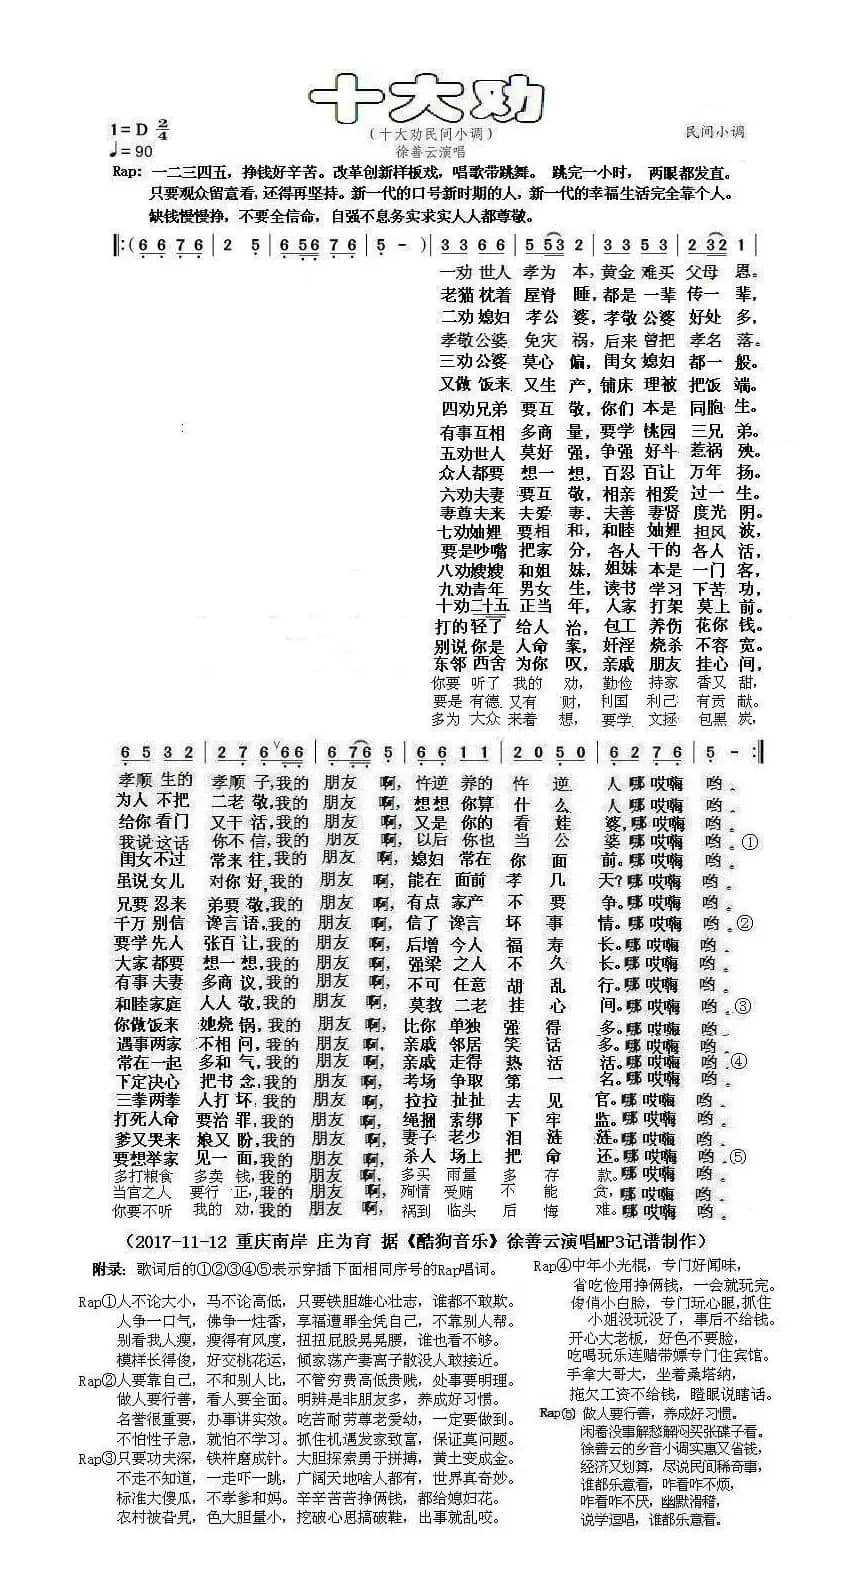 十大劝
1=D 2/4
（十大劝民间小调）
民间小调
♩=90
徐善云演唱
Rap: 一二三四五，挣钱好辛苦。改革创新样板戏，唱歌带跳舞。 跳完一小时， 两眼都发直。
只要观众留意看，还得再坚持。新一代的口号新时期的人，新一代的幸福生活完全靠个人。
缺钱慢慢挣，不要全信命，自强不息务实求实人人都尊敬。
‖:（6 6 7 6 | 2 5 | 6 56 7 6 | 5 - ）| 3 3 6 6 | 5 53 2 | 3 3 5 3 | 2 32 1 |
一劝 世人 孝为 本，黄金 难买 父母 恩。
老猫 枕着 屋脊 睡，都是 一辈 传一 辈，
二劝 媳妇 孝公 婆，孝敬 公婆 好处 多，
孝敬 公婆 免灾 祸，后来 曾把 孝名 落。
三劝 公婆 莫心 偏，闺女 媳妇 都一 般。
又做 饭来 又生 产，铺床 理被 把饭 端。
四劝 兄弟 要互 敬，你们 本是 同胞 生。
有事 互相 多商 量，要学 桃园 三兄 弟。
五劝 世人 莫好 强，争强 好斗 惹祸 殃。
众人 都要 想一 想，百忍 百让 万年 扬。
六劝 夫妻 要互 敬，相亲 相爱 过一 生。
妻尊 夫来 夫爱 妻，夫善 妻贤 度光 阴。
七劝 妯娌 要相 和，和睦 妯娌 担风 波，
要是 吵嘴 把家 分，各人 干的 各人 活，
八劝 嫂嫂 和姐 妹，姐妹 本是 一门 客，
九劝 青年 男女 生，读书 学习 下苦 功，
十劝 二十五 正当 年，人家 打架 莫上 前。
打的 轻了 给人 治，包工 养伤 花你 钱。
别说 你是 人命 案，奸淫 烧杀 不容 宽。
东邻 西舍 为你 叹，亲戚 朋友 挂心 间，
你要 听了 我的 劝，勤俭 持家 香又 甜，
要是 有德 又有 财，利国 利己 有贡 献。
多为 大众 来着 想，要学 文拯 包黑 炭，
6 5 3 2 | 2 7 6 66 | 6 76 5 | 6 6 1 1 | 2 0 5 0 | 6 2 7 6 | 5 - :‖
孝顺 生的 孝顺 子，我的 朋友 啊，忤逆 养的 忤 逆 人 哪 哎嗨 哟 。
为人 不把 二老 敬，我的 朋友 啊，想想 你算 什 么 人 哪 哎嗨 哟 。
给你 看门 又干 活，我的 朋友 啊，又是 你的 看 娃 婆，哪 哎嗨 哟 。
我说 这话 你不 信，我的 朋友 啊，以后 你也 当 公 婆 哪 哎嗨 哟 。①
闺女 不过 常来 往，我的 朋友 啊，媳妇 常在 你 面 前。哪 哎嗨 哟 。
虽说 女儿 对你 好，我的 朋友 啊，能在 面前 孝 几 天？哪 哎嗨 哟 。
兄要 忍来 弟要 敬，我的 朋友 啊，有点 家产 不 要 争。哪 哎嗨 哟 。
千万 别信 谗言 语，我的 朋友 啊，信了 谗言 坏 事 情。哪 哎嗨 哟 。②
要学 先人 张百 让，我的 朋友 啊，后增 今人 福 寿 长。哪 哎嗨 哟 。
大家 都要 想一 想，我的 朋友 啊，强梁 之人 不 久 长。哪 哎嗨 哟 。
有事 夫妻 多商 议，我的 朋友 啊，不可 任意 胡 乱 行。哪 哎嗨 哟 。
和睦 家庭 人人 敬，我的 朋友 啊，莫教 二老 挂 心 间。哪 哎嗨 哟 。③
你做 饭来 她烧 锅，我的 朋友 啊，比你 单独 强 得 多。哪 哎嗨 哟 。
遇事 两家 不相 问，我的 朋友 啊，亲戚 邻居 笑 话 多。哪 哎嗨 哟 。
常在 一起 多和 气，我的 朋友 啊，亲戚 走得 热 活 活。哪 哎嗨 哟 。④
下定 决心 把书 念，我的 朋友 啊，考场 争取 第 一 名。哪 哎嗨 哟 。
三拳 两拳 人打 坏，我的 朋友 啊，拉拉 扯扯 去 见 官。哪 哎嗨 哟 。
打死 人命 要治 罪，我的 朋友 啊，绳捆 索绑 下 牢 监。哪 哎嗨 哟 。
爹又 哭来 娘又 盼，我的 朋友 啊，妻子 老少 泪 涟 涟。哪 哎嗨 哟 。
要想 举家 见一 面，我的 朋友 啊，杀人 场上 把 命 还。哪 哎嗨 哟 。⑤
多打 粮食 多卖 钱，我的 朋友 啊，多买 雨量 多 存 款。哪 哎嗨 哟 。
当官 之人 要行 正，我的 朋友 啊，殉情 受贿 不 能 贪，哪 哎嗨 哟 。
你要 不听 我的 劝，我的 朋友 啊，祸到 临头 后 悔 难。哪 哎嗨 哟 。
（2017-11-12 重庆南岸 庄为育 据《酷狗音乐》徐善云演唱MP3记谱制作）
附录：歌词后的①②③④⑤表示穿插下面相同序号的Rap唱词。
Rap①人不论大小，马不论高低，只要铁胆雄心壮志，谁都不敢欺。
人争一口气，佛争一炷香，享福遭罪全凭自己，不靠别人帮。
别看我人瘦，瘦得有风度，扭扭屁股晃晃腰，谁也看不够。
模样长得俊，好交桃花运，倾家荡产妻离子散没人敢接近。
Rap②人要靠自己，不和别人比，不管穷费高低贵贱，处事要明理。
做人要行善，看人要全面。明辨是非朋友多，养成好习惯。
名誉很重要，办事讲实效。吃苦耐劳尊老爱幼，一定要做到。
不怕性子急，就怕不学习。抓住机遇发家致富，保证莫问题。
Rap③只要功夫深，铁杵磨成针。大胆探索勇于拼搏，黄土变成金。
不走不知道，一走吓一跳，广阔天地啥人都有，世界真奇妙。
标准大傻瓜，不孝爹和妈。辛辛苦苦挣俩钱，都给媳妇花。
农村被旮旯，色大胆量小，挖破心思搞破鞋，出事就乱咬。
Rap④中年小光棍，专门好闻味，
省吃俭用挣俩钱，一会就玩完。
俊俏小白脸，专门玩心眼,抓住
小姐没玩没了，事后不给钱。
开心大老板，好色不要脸，
吃喝玩乐连赌带嫖专门住宾馆。
手拿大哥大，坐着桑塔纳，
拖欠工资不给钱，瞪眼说瞎话。
Rap⑤ 做人要行善，养成好习惯。
闲着没事解愁解闷买张碟子看。
徐善云的乡音小调实惠又省钱，
经济又划算，尽说民间稀奇事，
谁都乐意看，咋看咋不烦，
咋看咋不厌，幽默滑稽，
说学逗唱，谁都乐意看。